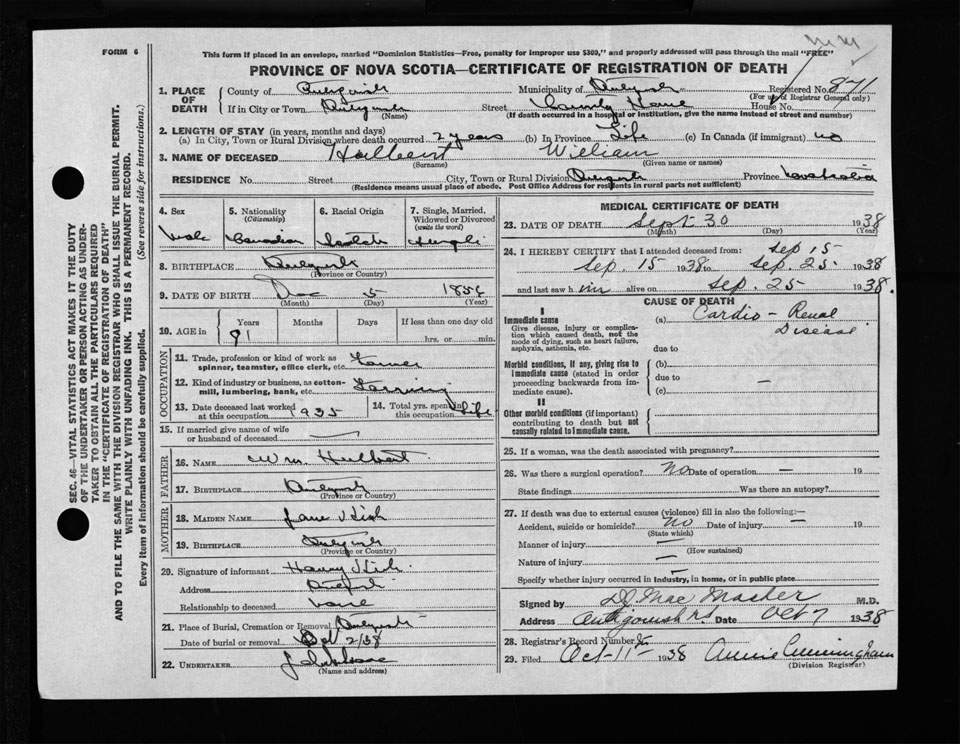 FORM 6
This form if placed in an envelope, marked "Dominion Statistics—Free, penalty for improper use $300," and properly addressed will pass through the mail "FREE"
PROVINCE OF NOVA SCOTIA—CERTIFICATE OF REGISTRATION OF DEATH
1. PLACE OF DEATH
County of
Municipality of
Registered No. 871
(For use of Registrar General only)
If in City or Town
(Name)
Street County Home House No.
(If death occurred in a hospital or institution, give the name instead of street and number)
2. LENGTH OF STAY (in years, months and days)
(a) In City, Town or Rural Division where death occurred 2 years (b) In Province Life (c) In Canada (if immigrant) no
3. NAME OF DECEASED William
(Surname) (Given name or names)
RESIDENCE No. Street City, Town or Rural Division Province Nova Scotia
(Residence means usual place of abode. Post Office Address for residents in rural parts not sufficient)
4. Sex
5. Nationality (Citizenship)
6. Racial Origin
7. Single, Married, Widowed or Divorced (write the word)
Male Canadian Single
8. BIRTHPLACE
(Province or Country)
9. DATE OF BIRTH Dec 5
(Month) (Day) (Year)
10. AGE in
Years Months Days If less than one day old
91 hrs. or min.
OCCUPATION
11. Trade, profession or kind of work as spinner, teamster, office clerk, etc. Farmer
12. Kind of industry or business, as cotton-mill, lumbering, bank, etc. Farming
13. Date deceased last worked at this occupation 1935
14. Total yrs. spent in this occupation life
15. If married give name of wife or husband of deceased —
FATHER
16. NAME Wm. Hulbert
17. BIRTHPLACE
(Province or Country)
MOTHER
18. MAIDEN NAME Jane
19. BIRTHPLACE
(Province or Country)
20. Signature of informant Harry
Address
Relationship to deceased
21. Place of Burial, Cremation or Removal
Date of burial or removal Oct 2/38
22. UNDERTAKER
(Name and address)
MEDICAL CERTIFICATE OF DEATH
23. DATE OF DEATH Sept 30 1938
(Month) (Day) (Year)
24. I HEREBY CERTIFY that I attended deceased from: Sep 15
Sep. 15 1938 to Sep. 25 1938
and last saw him alive on Sep. 25 1938.
CAUSE OF DEATH
I
Immediate cause
Give disease, injury or complication which caused death, not the mode of dying, such as heart failure, asphyxia, asthenia, etc.
(a) Cardio-Renal Disease
due to
Morbid conditions, if any, giving rise to immediate cause (stated in order proceeding backwards from immediate cause).
(b)
due to —
(c)
II
Other morbid conditions (if important) contributing to death but not causally related to immediate cause.
25. If a woman, was the death associated with pregnancy?
26. Was there a surgical operation? No Date of operation — 19
State findings Was there an autopsy?
27. If death was due to external causes (violence) fill in also the following:—
Accident, suicide or homicide? No Date of injury — 19
(State which)
Manner of injury —
(How sustained)
Nature of injury —
Specify whether injury occurred in industry, in home, or in public place
Signed by MacMaster M.D.
Address Antigonish Date Oct 7 1938
28. Registrar's Record Number
29. Filed Oct-11 1938 Annie Cunningham
(Division Registrar)
SEC. 46—VITAL STATISTICS ACT MAKES IT THE DUTY OF THE UNDERTAKER OR PERSON ACTING AS UNDERTAKER TO OBTAIN ALL THE PARTICULARS REQUIRED IN THE "CERTIFICATE OF REGISTRATION OF DEATH" AND TO FILE THE SAME WITH THE DIVISION REGISTRAR WHO SHALL ISSUE THE BURIAL PERMIT.
WRITE PLAINLY WITH UNFADING INK. THIS IS A PERMANENT RECORD.
Every item of information should be carefully supplied. (See reverse side for instructions.)